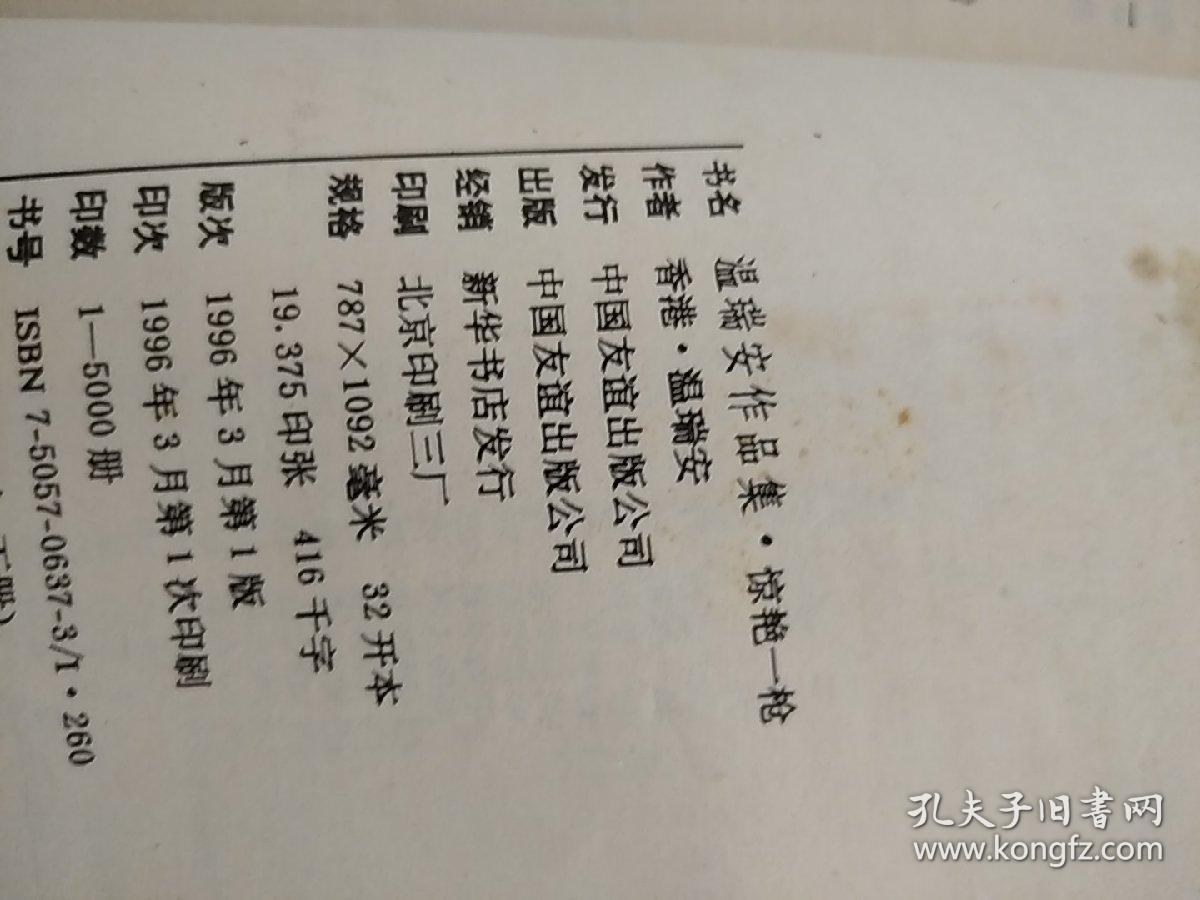 书名 温瑞安作品集·惊艳一枪
作者 香港·温瑞安
发行 中国友谊出版公司
出版 中国友谊出版公司
经销 新华书店发行
印刷 北京印刷三厂
规格 787×1092毫米 32开本
19.375印张 416千字
版次 1996年3月第1版
印次 1996年3月第1次印刷
印数 1—5000册
书号 ISBN 7-5057-0637-3/I·260
下册)
孔夫子旧书网
www.kongfz.com